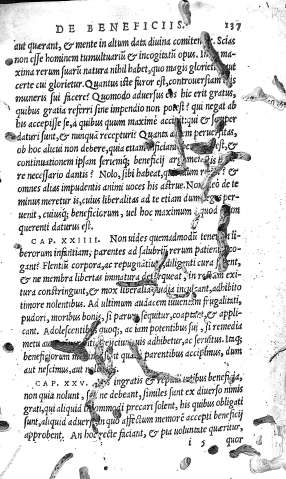 DE BENEFICIIS. 137
aut quærant, & mente in altum data diuina comitentur. Scias
non esse hominem tumultuariū & incogitatū opus. In maxima
rerum suarū natura nihil habet, quo magis glorietur, aut
certe cui glorietur. Quantus iste furor est, controuersiam
muneris sui facere? Quomodo aduersus hic erit gratus,
quibus gratia referri sine impendio non potest? qui negat ab
his accepisse se, a quibus quum maxime accipit: qui & semper
daturi sunt, & nunquā recepturi? Quanta autem peruersitas,
ob hoc alicui non debere, quia etiam est, &
continuationem ipsam seriemq́; beneficij argumentum
re necessario dantis? Nolo, sibi habeat, &
omnes alias impudentis animi uoces his astrue. Non ideo de te
minus meretur is, cuius liberalitas ad te etiam dum
uenit, cuiusq́; beneficiorum, uel hoc maximum quod
querenti daturus est.
CAP. XXIIII. Non uides quemadmodū teneram liberorum
infantiam, parentes ad salubriū rerum patientiā cogant?
Flentiū corpora, ac repugnātiū diligenti cura
& ne membra libertas immatura detorqueat, in rectum exitura
constringunt, & mox liberalia studia inculcant, adhibito
timore nolentibus. Ad ultimum audacem iuuentam frugalitati,
pudori, moribus bonis, si parum sequitur, coaptant, & applicant.
Adolescentibus quoq́;, ac iam potentibus sui, si remedia
metu uis adhibetur, ac seruitus. Itaq́;
beneficiorum maxima sunt quæ parentibus accipimus, dum
aut nescimus, aut nolumus.
CAP. XXV. His ingratis & repudiātibus beneficia,
non quia nolunt, sed ne debeant, similes sunt ex diuerso nimis
grati, qui aliquid incommodi precari solent, his quibus obligati
sunt, aliquid aduersi, in quo affectum memorē accepti beneficij
approbent. An hoc recte faciant, & pia uoluntate quæritur,
i 5 quor